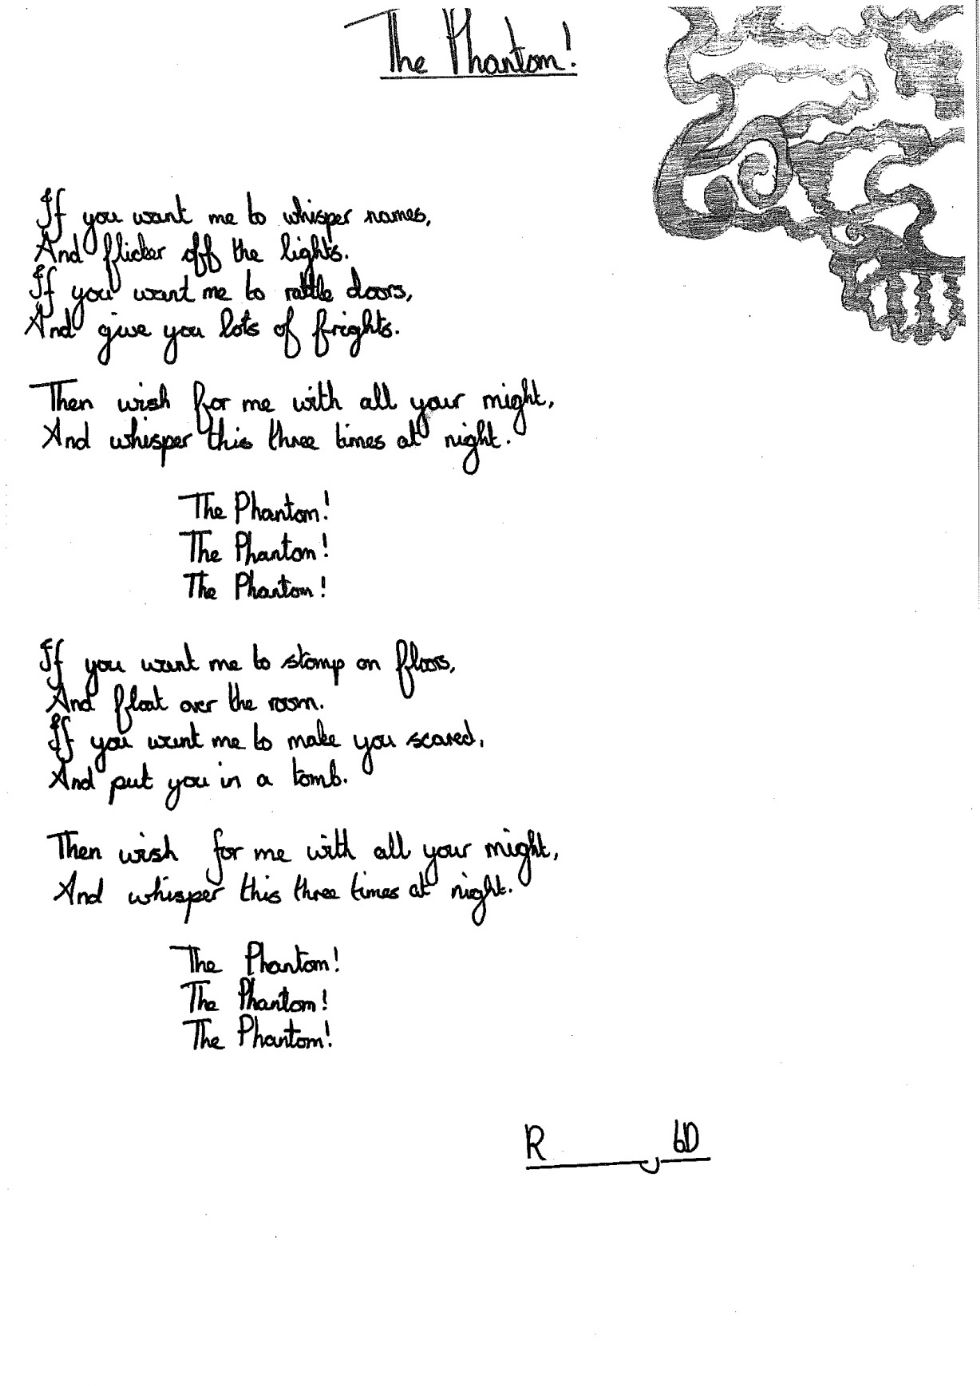 The Phantom!
If you want me to whisper names,
And flicker off the lights.
If you want me to rattle doors,
And give you lots of frights.
Then wish for me with all your might,
And whisper this three times at night.
The Phantom!
The Phantom!
The Phantom!
If you want me to stomp on floors,
And float over the room.
If you want me to make you scared,
And put you in a tomb.
Then wish for me with all your might,
And whisper this three times at night.
The Phantom!
The Phantom!
The Phantom!
R , 6D